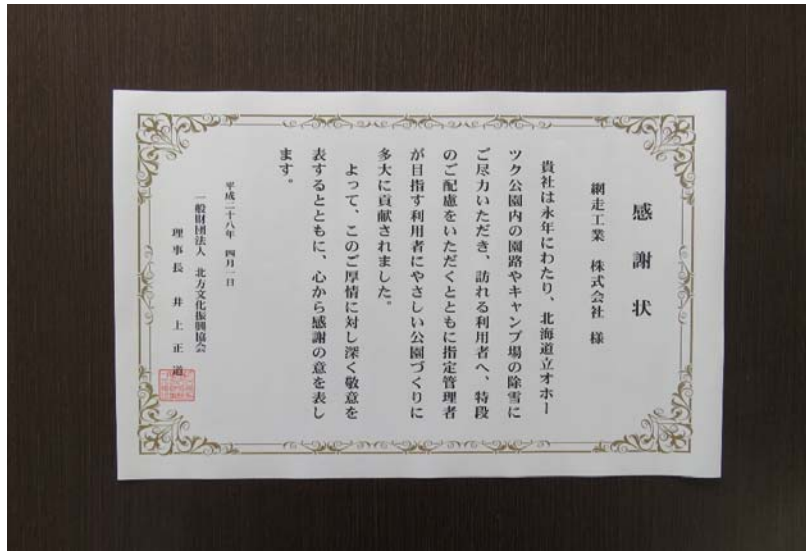 感謝状
網走工業 株式会社 様
貴社は永年にわたり、北海道立オホー
ツク公園内の園路やキャンプ場の除雪に
ご尽力いただき、訪れる利用者へ、特段
のご配慮をいただくとともに指定管理者
が目指す利用者にやさしい公園づくりに
多大に貢献されました。
よって、このご厚情に対し深く敬意を
表するとともに、心から感謝の意を表し
ます。
平成二十八年 四月一日
一般財団法人 北方文化振興協会
理事長 井上正道